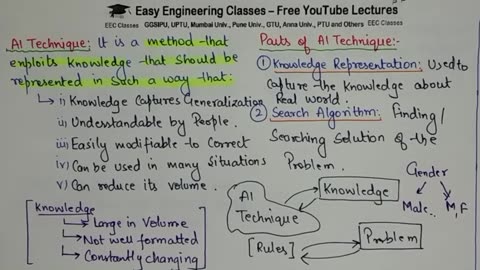 Easy Engineering Classes – Free YouTube Lectures
EEC Classes GGSIPU, UPTU, Mumbai Univ., Pune Univ., GTU, Anna Univ., PTU and Others EEC Classes
AI Technique: It is a method that
exploits Knowledge that should be
represented in Such a way that:
i) Knowledge Captures Generalization
ii) Understandable by People.
iii) Easily modifiable to Correct
iv) Can be used in many Situations
v) Can reduce its Volume.
Knowledge
Large in Volume
Not well formatted
Constantly changing
Parts of AI Technique:-
① Knowledge Representation: Used to
Capture the Knowledge about
Real World.
② Search Algorithm: Finding/
Searching Solution of the
Problem.
AI
Technique
Knowledge
[Rules]
Problem
Gender
Male.. M,F